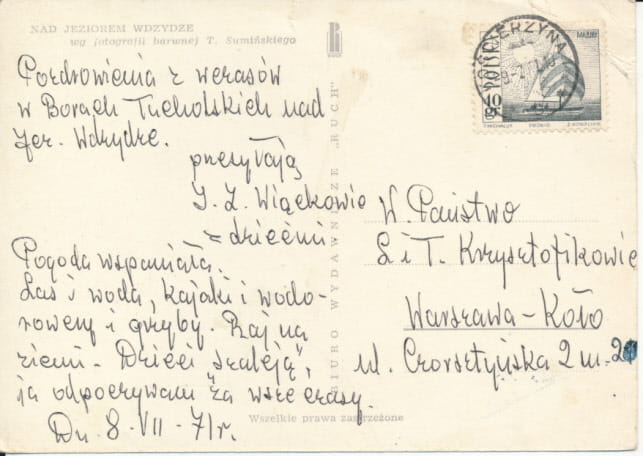 NAD JEZIOREM WDZYDZE
wg fotografii barwnej T. Sumińskiego
Pozdrowienia z wczasów
w Borach Tucholskich nad
Jez. Wdzydze.
przesyłają
J. Z. Wiąckowie
z dziećmi
Pogoda wspaniała.
Las i woda, kajaki i wodo-
rowery i grzyby. Raj na
ziemi. Dzieci "szaleją",
ja odpoczywam za wsze czasy.
Dn. 8-VII-71r.
BIURO WYDAWNICZE "RUCH"
KOŚCIERZYNA
POLSKA
40 GR
W. Państwo
L i T. Krzysztofikowie
Warszawa-Koło
ul. Czorsztyńska 2 m.
Wszelkie prawa zastrzeżone